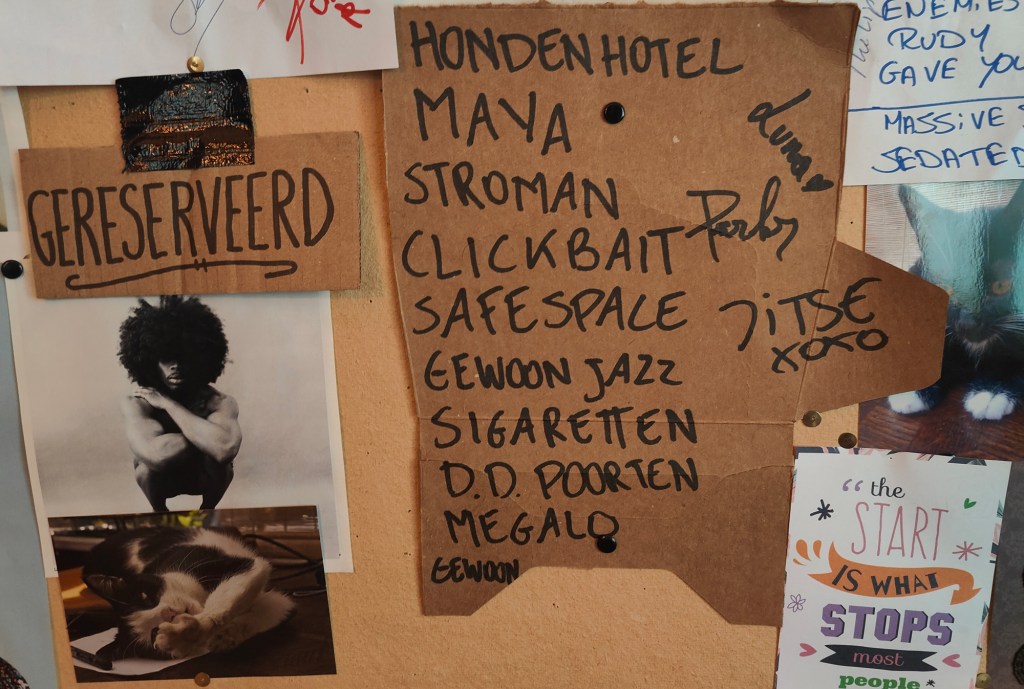 GERESERVEERD
HONDENHOTEL
MAYA
STROMAN
CLICKBAIT
SAFESPACE
GEWOON JAZZ
SIGARETTEN
D.D. POORTEN
MEGALO
GEWOON
Luna
JiTSE
XOXO
ENEMiES
RUDY
GAVE YOU
MASSiVE
SEDATED
“the
START
IS WHAT
STOPS
most
people